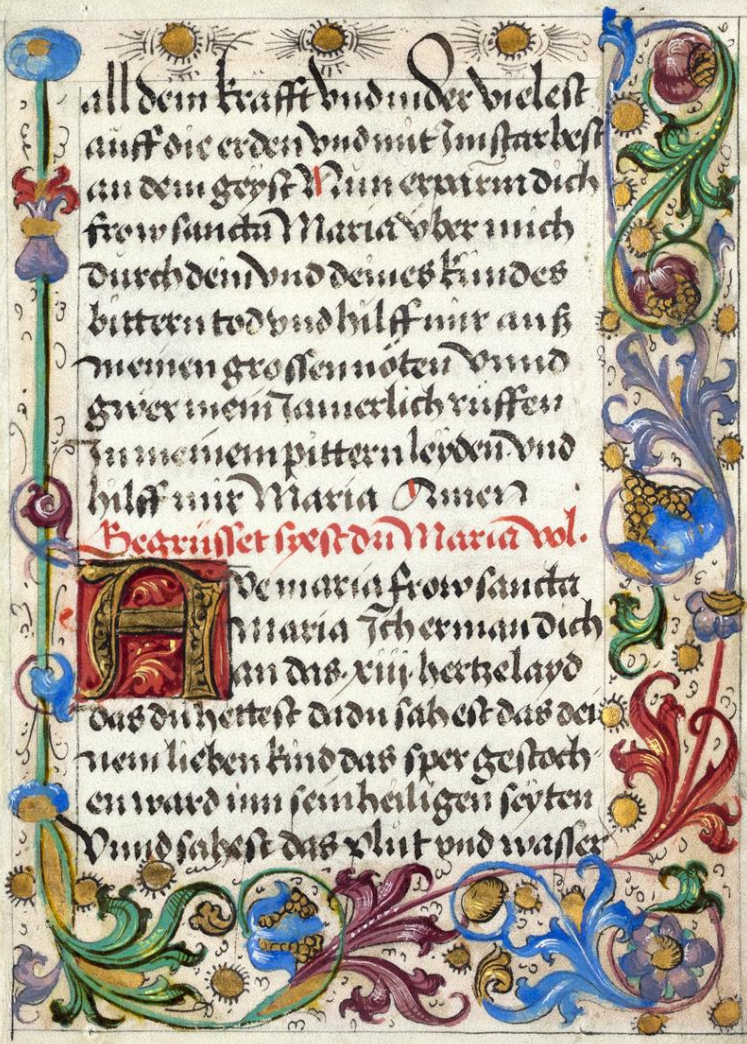 all dein krafft vnd nider vielest
auff die erden vnd mit Im starbest
an dem geyst Nun erparm dich
frow sancta Maria vber mich
durch dein vnd deines kindes
bittern tod vnd hilff mir auß
meinen grossen nöten Vnnd
gwer mein Jamerlich rüffen
In meinem pittern leyden vnd
hilff mir Maria Amen
Begrüsset syest dü Maria vol.
AVe maria frow sancta
Maria Ich erman dich
an das .xiii. hertzelayd
das du hettest da du sahest das dei
nem lieben kind das sper gestoch
en ward inn sein heiligen seyten
Vnnd sahest das plut vnd wasser